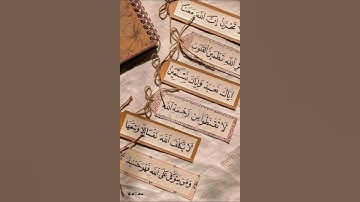 لا تحزن إن الله معنا
الله تطمئن القلوب
إياك نعبد وإياك نستعين
لا تقنطوا من رحمة الله
لا يكلف الله نفسا إلا وسعها
ومن يتوكل على الله فهو حسبه